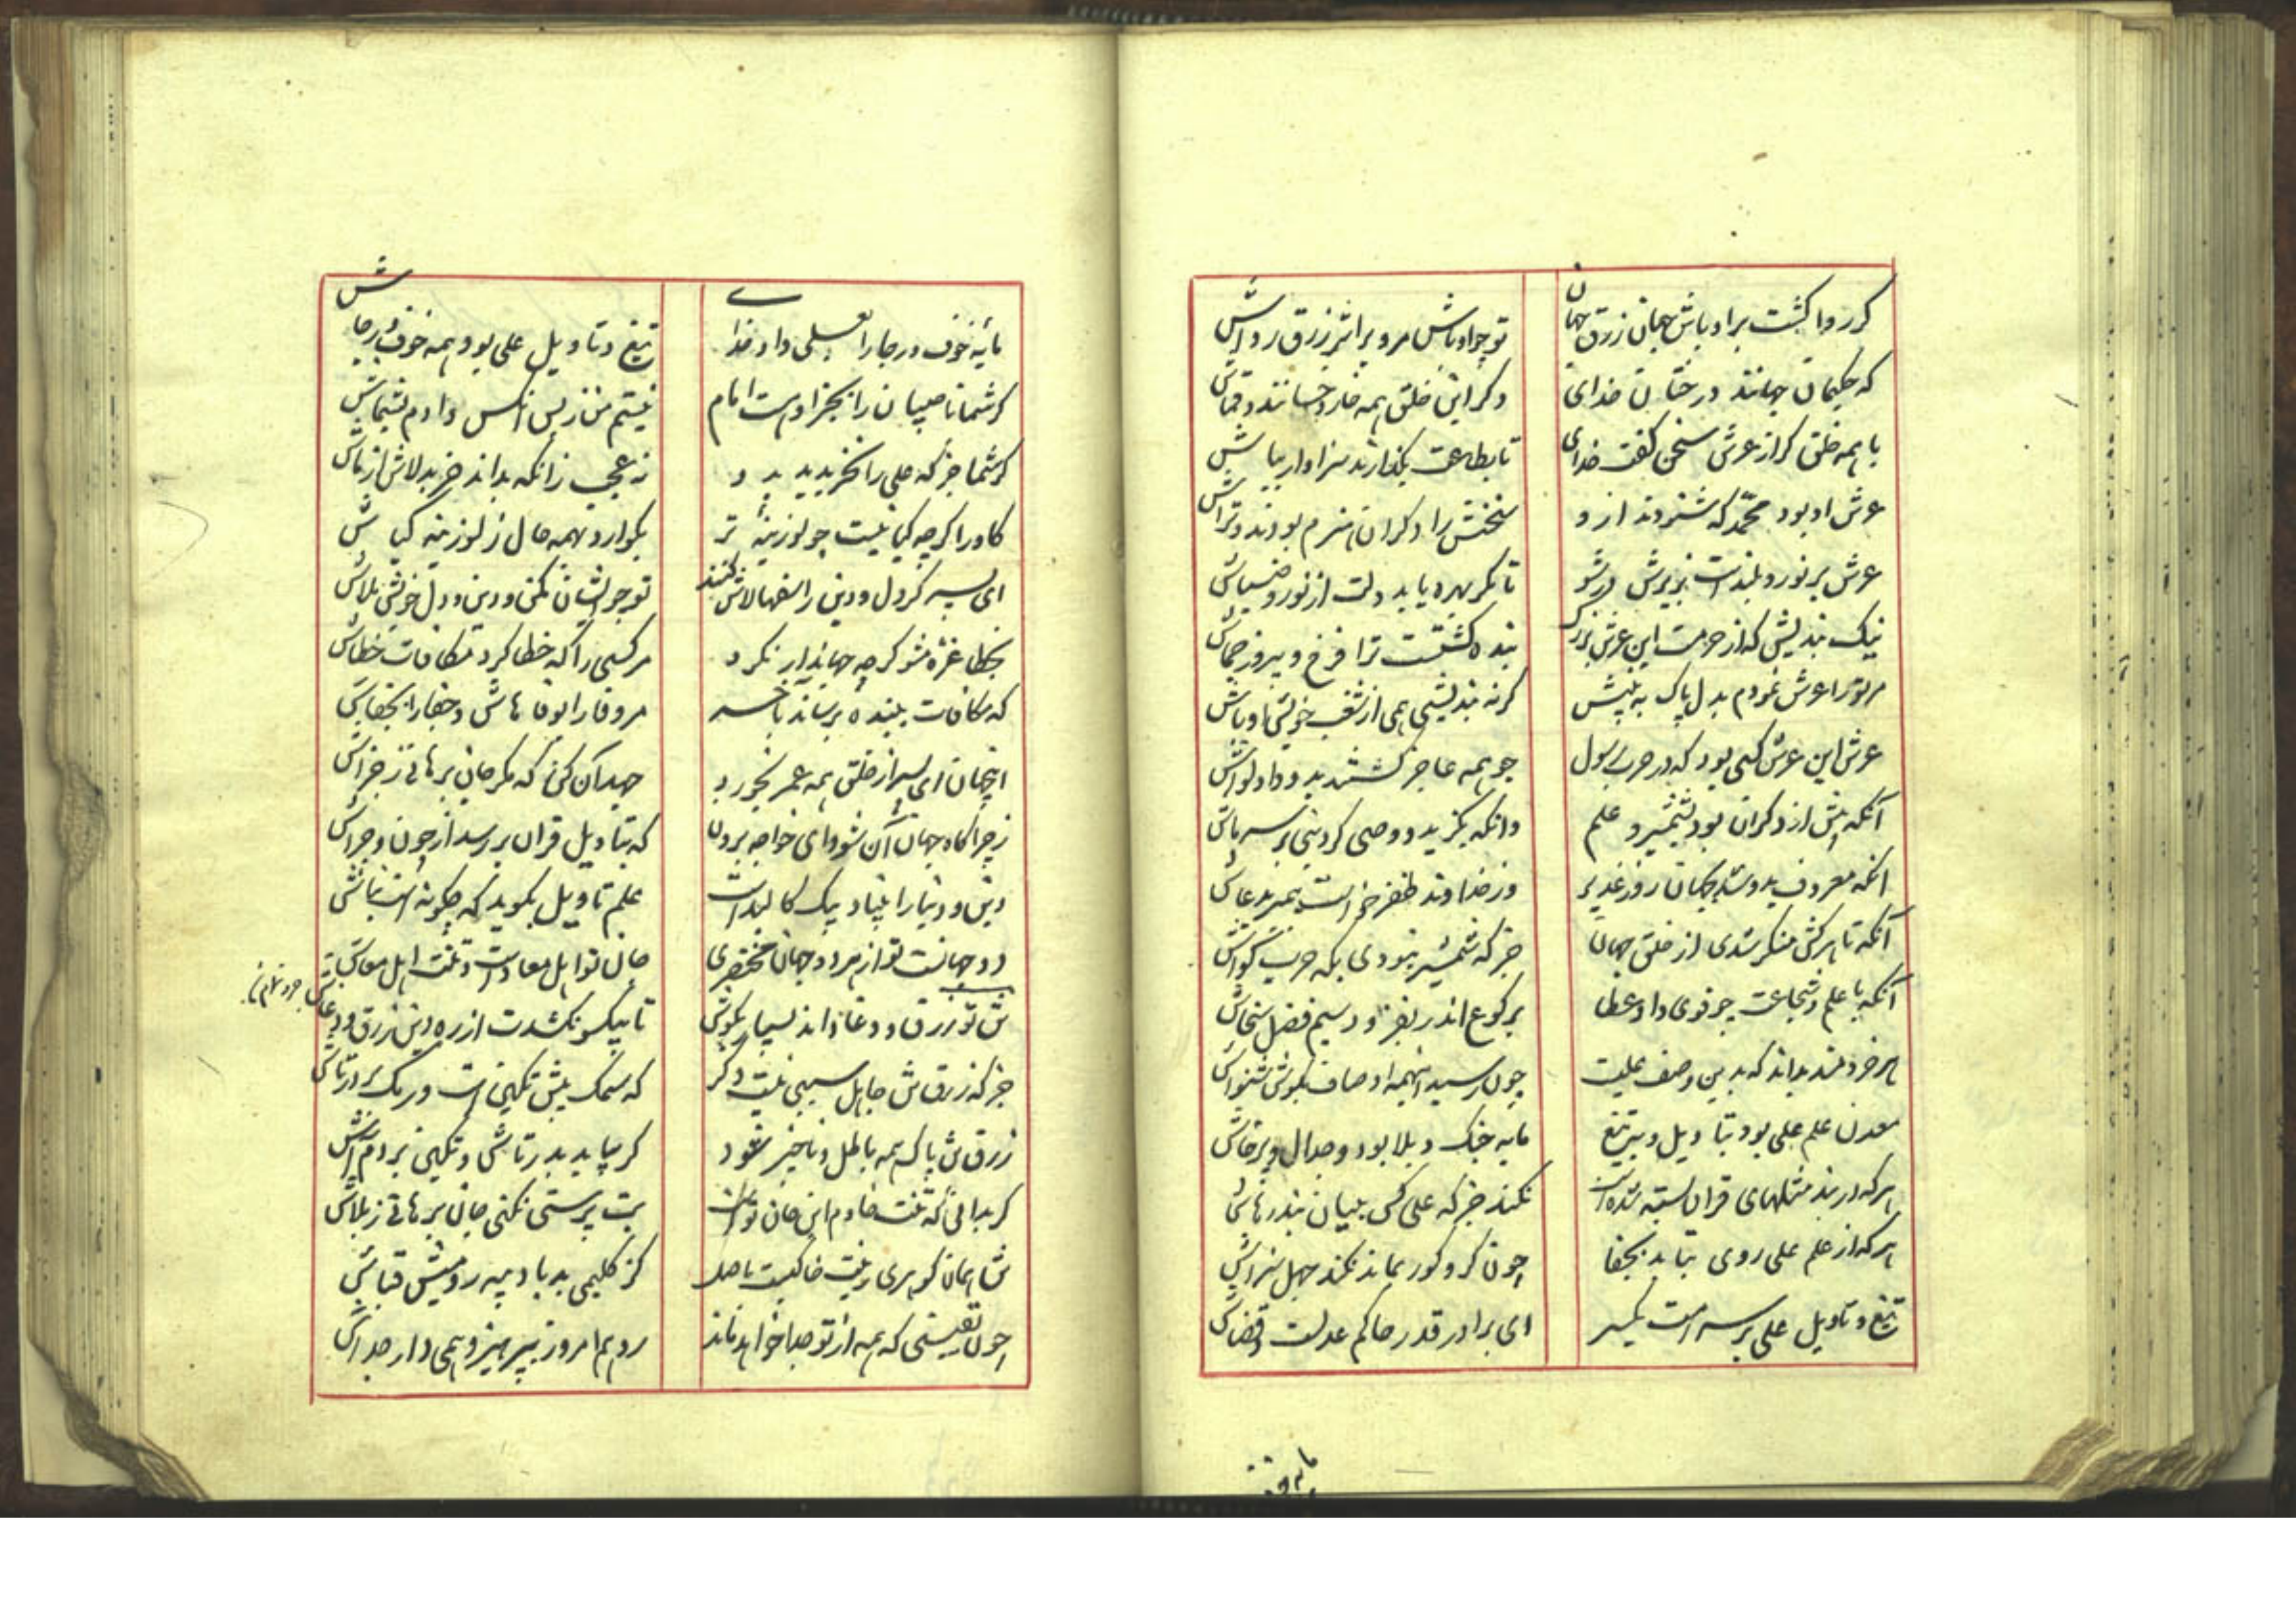 گر روا گشت بر اوباش جهان زرق جهان
تو چو اوباش مرو بر اثر زرق رواش
که حکیمان جهانند درختان خدای
دگر این خلق همه خار و خسانند و قماش
با همه خلق گر از عرش سخن گفت خدای
تا بطاعت بگذارند سزاوار بناش
عرش او بود محمد که شنودند ازو
سخنش را دگران هیزم بودند و تراش
عرش پر نور و بلندست بزیرش در شو
تا مگر بهره بیابد دلت از نور و ضیاش
نیک بندیش که از حرمت این عرش بزرگ
بنده گشتست ترا فرخ و پیروز و
مر ترا عرش نمودم بدل پاک ببینش
گر نه بندیشی همی از شغب خویش و اوباش
عرش این عرش کسی بود که در حرب رسول
چو همه عاجز گشتند بدو داد لواش
آنکه بیش از دگران بود بشمشیر و علم
وانکه بگزید و وصی کرد نبی بر سر ماش
آنکه معروف بدو شد بجهان روز غدیر
وز خداوند ظفر خواست پیمبر بدعاش
آنکه تا هرکش منکر شدی از خلق جهان
جز که شمشیر نبودی بگه حرب گواش
آنکه با علم و شجاعت چو قوی داد عطا
برکوع اندر بفزود سیم فضل سخاش
هر خردمند بداند که بدین وصف علیست
چون رسید اینهمه اوصاف بگوش شنواش
معدن علم علی بود بتاویل و بتیغ
مایه جنگ و بلا بود و جدال و پرخاش
هرکه در بند مثلهای قران بسته شده است
نکند جز که علی کس بیان بند رهاش
هرکه از علم علی روی بتابد بجفا
چون کر و کور بماند نکند جهل سزاش
تیغ و تاویل علی بر سر امت یکسر
ای برادر قدر حاکم عدلست و قضاش
مایه خوف و رجا را بعلی داد خدای
تیغ و تاویل علی بود همه خوف و رجاش
گر شما ناصبیان را بجز اوست امام
نیستم من ز پس آنکس دادم بشماش
گر شما جز که علی را بخریدید بدو
نه عجب زانکه بداند خر بد لاش از ماش
گاو را گرچه گیا نیست چو لوزینه تر
بگوارد بهمه حال ز لوزینه گیاش
ای پسر گر دل و دین را سفها لاش کنند
تو چو ایشان نکنی دین و دل خویش بلاش
بخطا غره مشو گرچه جهاندار نکرد
مر کسی را که خطا کرد مکافات خطاش
که مکافات ببنده برساند بآخر
مر وفا را بوفاهاش و جفا را بجفاش
اینجهان ای پسر از خلق همه عمر بخورد
جهد آن کن که مگر جان برهانی ز جزاش
ز چراگاه جهان آن شود ای خواجه برون
که بتاویل قران بررسد از چون و چراش
دین و دنیا را بنیاد بیک کالبد است
علم تاویل بگوید که چگونه است بناش
دو جهانست تو از هر دو جهان مختصری
جان تو اهل معاد است و تنت اهل معاش
تن تو زرق و دغا داند بسیار بکوش
تا بیکسو نکشدت از ره دین زرق و دغاش
جز که زرق تن جاهل سببی نیست دگر
که سمک بیش
زرق تن پاک همه باطل و ناچیز شود
گر بیاید بدر
گر بدانی که تنت خادم این جان تو است
بت پرستی نکنی جان برهانی ز بلاش
تن همان گوهری ریخت خاکیست باصل
گر گلیمی بد یا دیبه رومیست قباش
چون یقینی که همه از تو جدا خواهد ماند
رو هم امروز بپرهیز و همی دار جداش
مایه خوف